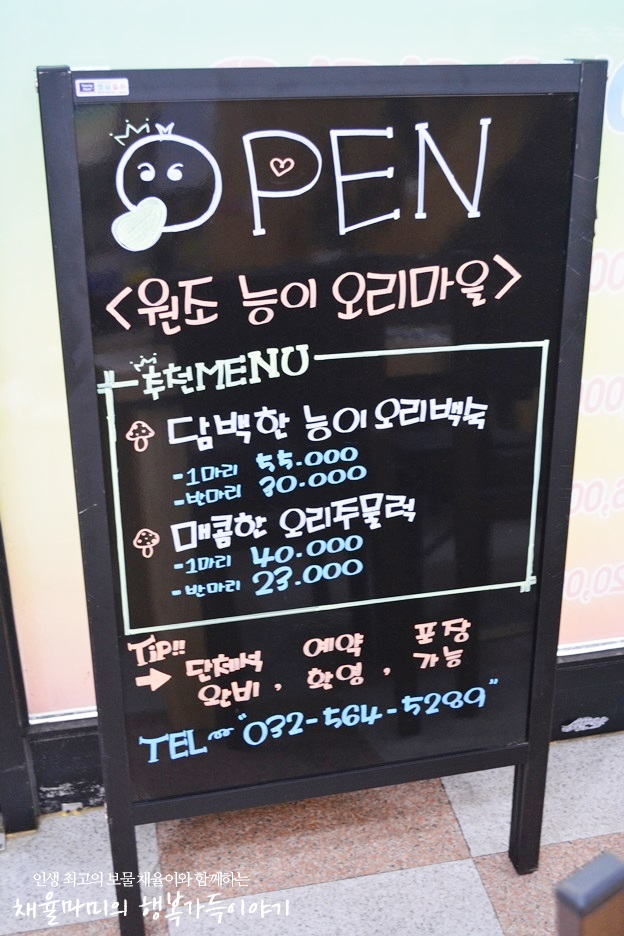 OPEN
<원조 능이 오리마을>
추천MENU
담백한 능이오리백숙
-1마리 55.000
-반마리 30.000
매콤한 오리주물럭
-1마리 40.000
-반마리 23.000
TiP!!
→ 단체석 완비, 예약 환영, 포장 가능
TEL "032-564-5289"
인생 최고의 보물 채율이와 함께하는
채율마미의 행복가득이야기